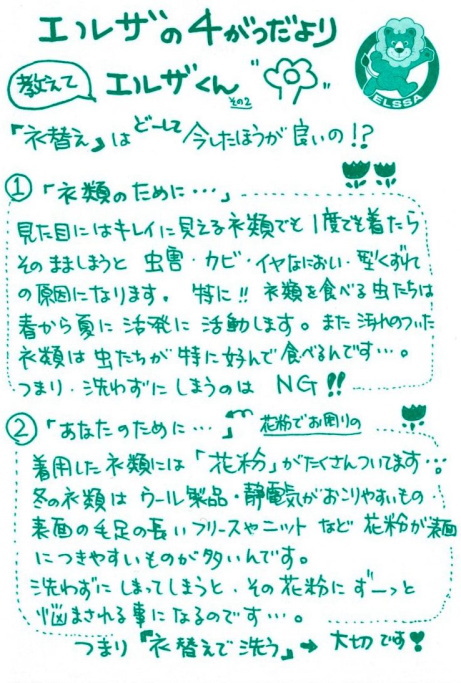 エルザの4がつだより
教えて
エルザくん
その2
ELSSA
『衣替え』はどーして今したほうが良いの!?
① 「衣類のために…」
見た目にはキレイに見える衣類でも1度でも着たら
そのまましまうと 虫害・カビ・イヤなにおい・型くずれ
の原因になります。 特に!! 衣類を食べる虫たちは
春から夏に活発に活動します。また汚れのついた
衣類は虫たちが特に好んで食べるんです…。
つまり・洗わずにしまうのは NG!!
② 「あなたのために…」
花粉でお困りの
着用した衣類には「花粉」がたくさんついてます…
冬の衣類は ウール製品・静電気がおこりやすいもの・
表面の毛足の長いフリースやニットなど 花粉が表面
につきやすいものが多いんです。
洗わずにしまってしまうと、その花粉に ずーっと
悩まされる事になるのです…。
つまり『衣替えで洗う』➡ 大切です♥